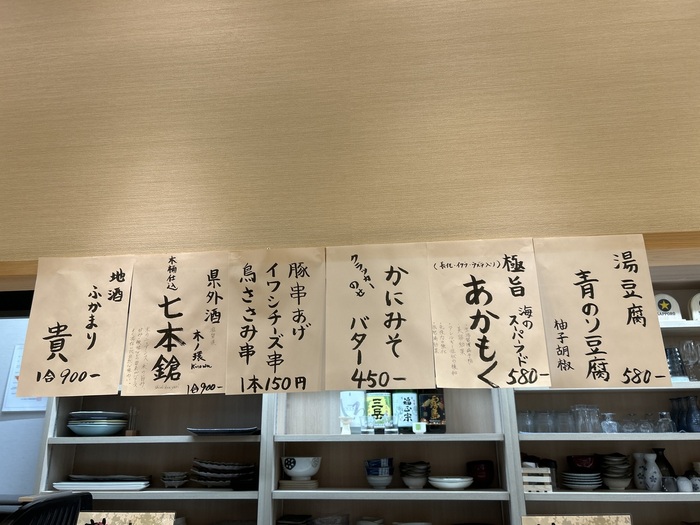 湯豆腐
青のり豆腐
柚子胡椒
580-
極旨
海の
スーパーフード
あかもく
580-
かにみそ
バター
クラッカー
のせ
450-
豚串あげ
イワシチーズ串
鳥ささみ串
1本150円
県外酒
木ノ環
木桶仕込
七本鎗
1合900-
地酒
ふかまり
貴
1合900-